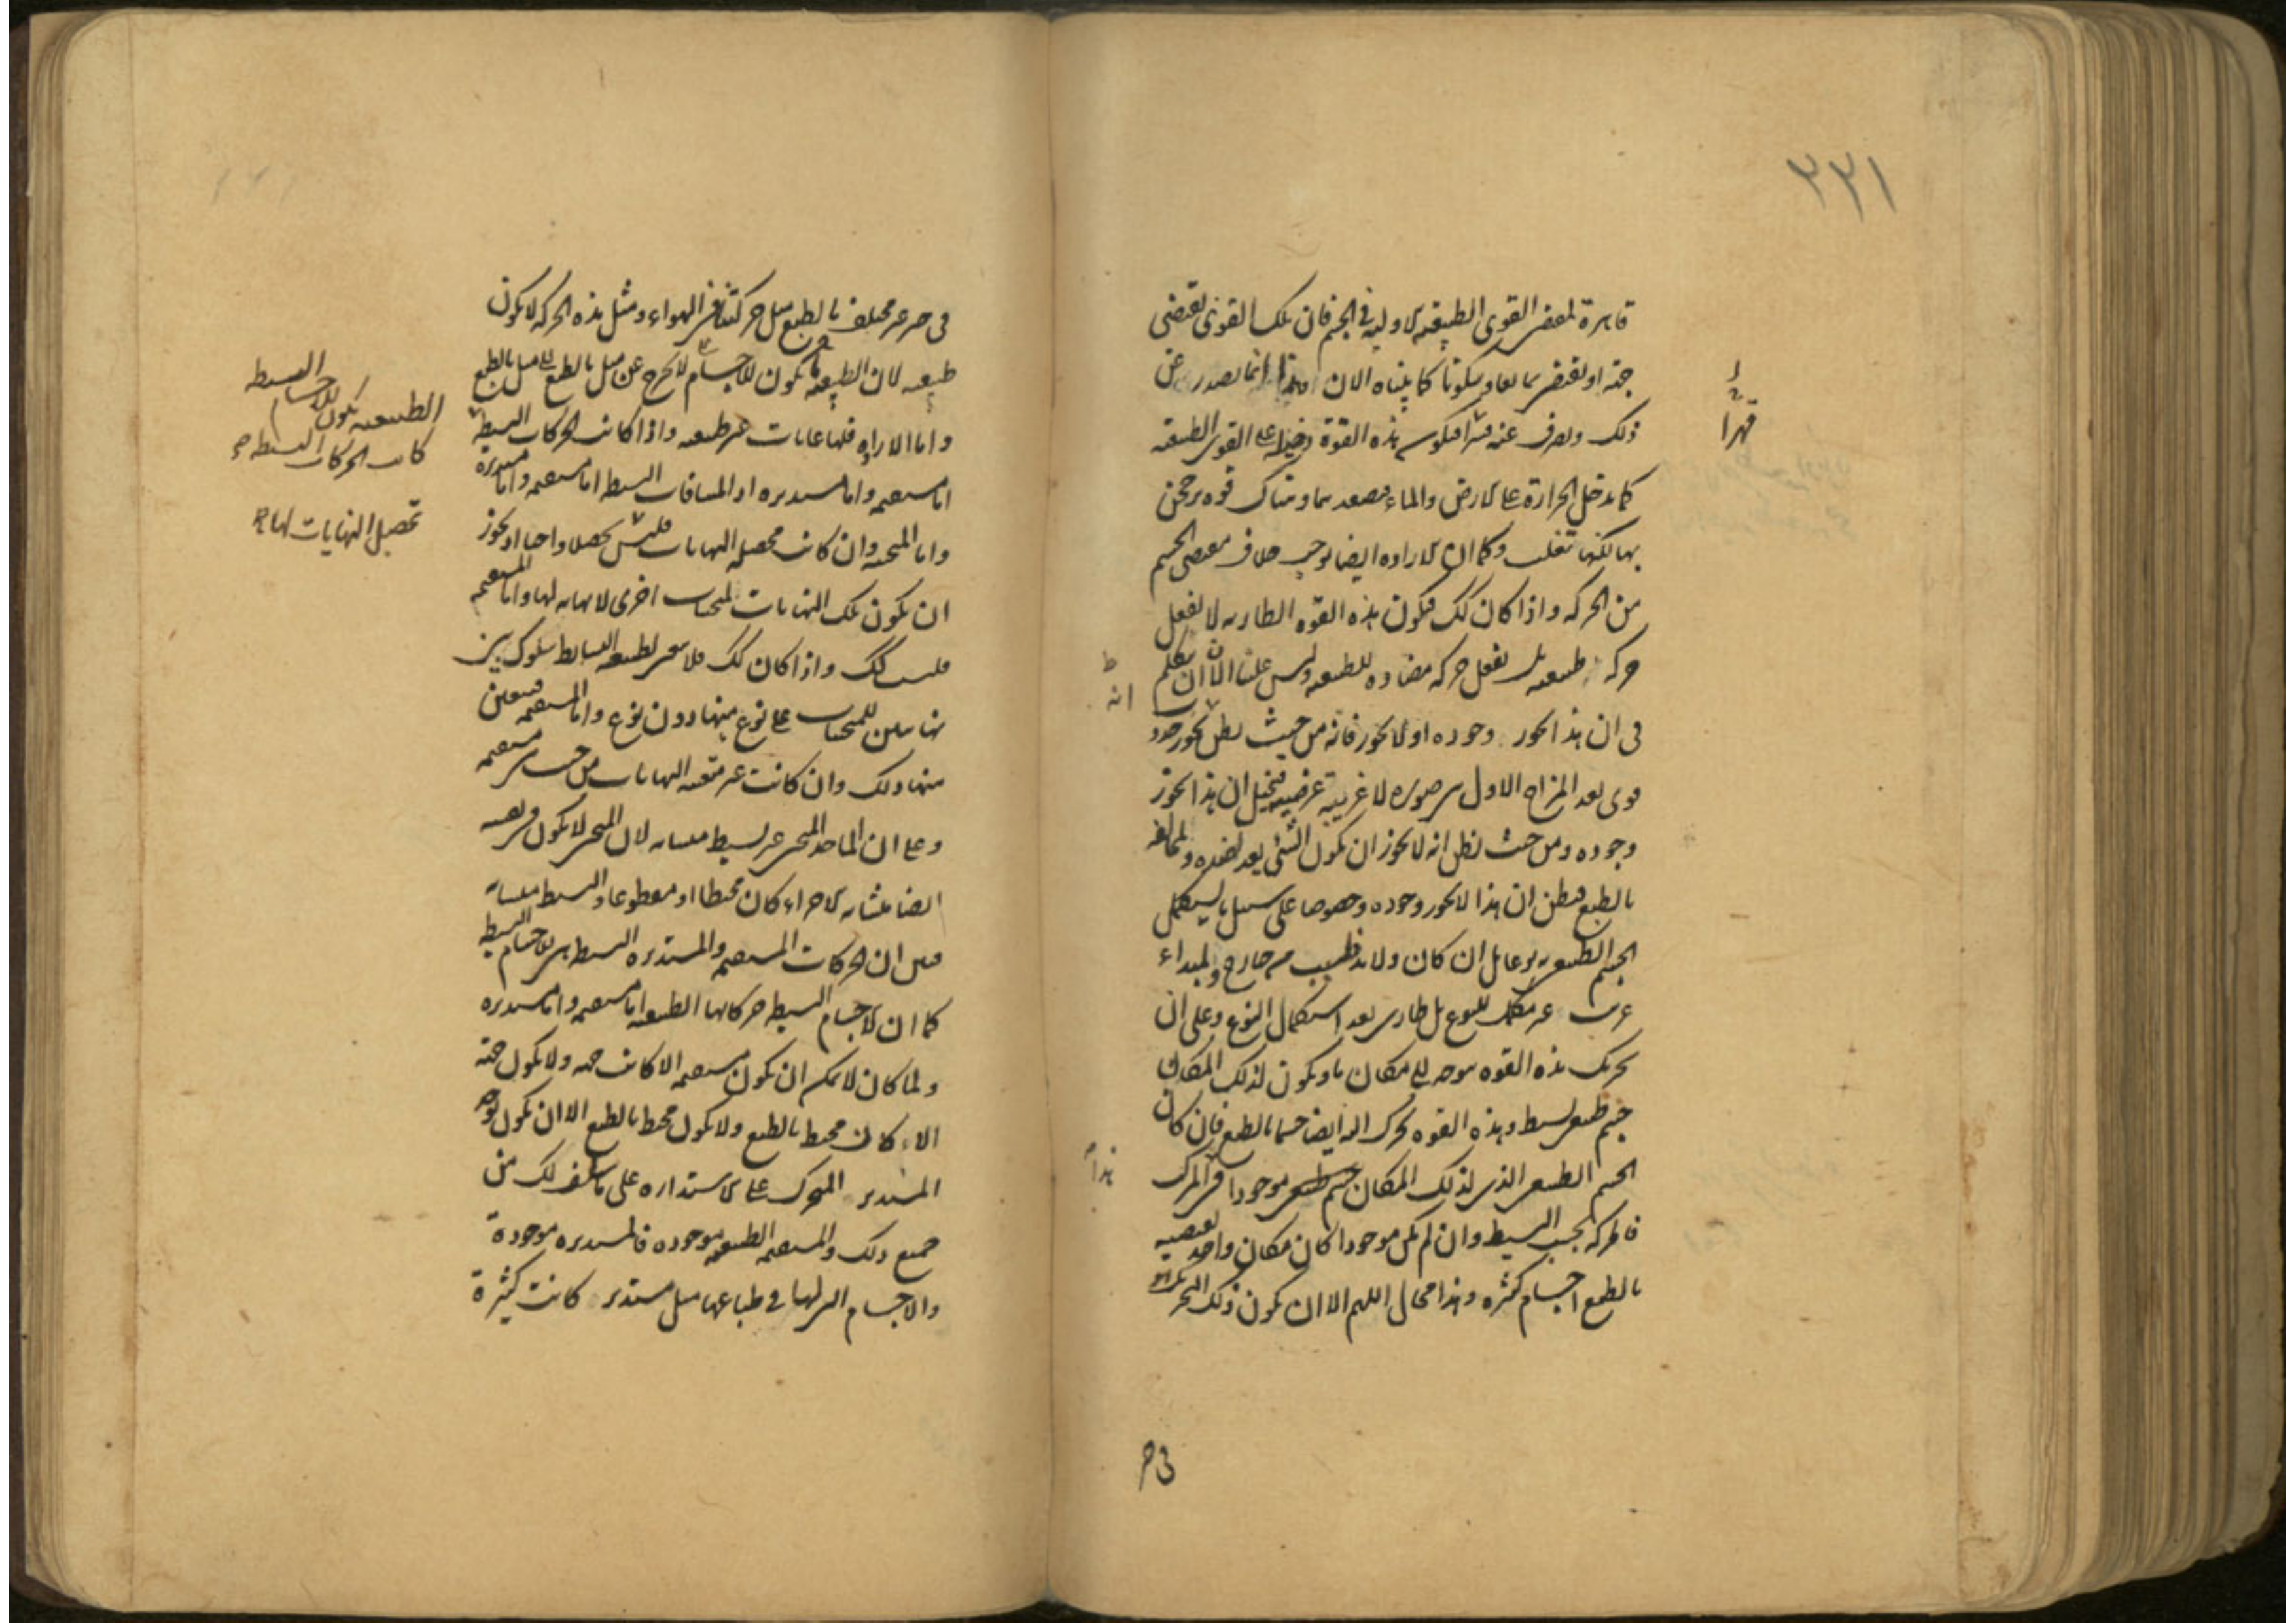 ٢٢١
قاهرة لبعض القوى الطبيعيه الاوليه فى الجسم فان تلك القوى تقتضى
جهة او تقتضى سكونا كما بيناه الان انما يصدر عن
ذلك ويصرف عنه فيكون هذه القوة دخيلة على القوى الطبيعيه
قهرا
كما يدخل الحرارة على الارض والماء فيصعد بهما وهناك قوه يرجحن
بها لكنها تغلب وكما ان الاراده ايضا توجب خلاف مقتضى الجسم
من الحركه واذا كان كك فيكون هذه القوه الطاريه لا تفعل
حركه طبيعيه بل تفعل حركه مضاده للطبيعيه وليس علينا الان ان نتكلم
انه
فى ان هذا يجوز وجوده او لا يجوز فانه من حيث يظن يجوز حدوث
قوى بعد المزاج الاول هى صوره لا غريبة عرضيه فيخيل ان هذا يجوز
وجوده ومن حيث يظن انه لا يجوز ان يكون الشئ يعد لضده والمخالفه
بالطبع فيظن ان هذا لا يجوز وجوده وخصوصا على سبيل ما يستكمل
الجسم الطبيعى ان كان ولا بد فلسبب من خارج والمبداء
غير مكمل للنوع بل طارى بعد استكمال النوع وعلى ان
تحريك هذه القوه موجه الى مكان ما ويكون لذلك المكان
جسم طبيعى بسيط وهذه القوه تحرك اليه ايضا جسما بالطبع فان كان
هذا
الجسم الطبيعى الذى لذلك المكان جسم طبيعى موجودا فى المركب
فالحركه بحسب البسيط وان لم يكن موجودا كان مكان واحد تقتضيه
بالطبع اجسام كثيره وهذا محال اللهم الا ان يكون ذلك التحريك
فى حيز
فى حيز غير مختلف بالطبع مثل حركتنا فى الهواء ومثل هذه الحركه لا يكون
طبيعيه لان الطبيعيه يكون للاجسام لا تخرج عن ميل بالطبع الى ميل بالطبع
واما الاراديه فلها غايات غير طبيعيه واذا كانت الحركات البسيطه
البسيطه
الطبيعيه يكون للاجسام
كانت الحركات البسيطه
اما مستقيمه واما مستديره اذ المسافات البسيطه اما مستقيمه واما مستديره
واما المنحنيه وان كانت محصله النهايات فليس تحصلا واجبا اذ يجوز
تحصيل النهايات لها
ان يكون تلك النهايات لمنحنيات اخرى لا نهايه لها واما المستقيمه
فليست كك واذا كان كك فلا يتعين لطبيعه البسايط سلوك بين
نهايتين للمنحنيات على نوع منها دون نوع واما المستقيمه فيتعين
فيها ذلك وان كانت غير متعينه النهايات من حيث هى مستقيمه
وعلى ان الماخذ المنحنى غير بسيط متشابه لان المنحنى لا يكون فى نفسه
ايضا متشابه الاجزاء كان محيطا او مقطوعا والبسيط متشابه
فبين ان الحركات المستقيمه والمستديره البسيطه هى للاجسام البسيطه
كما ان الاجسام البسيطه حركاتها الطبيعيه اما مستقيمه واما مستديره
ولما كان لا يمكن ان يكون مستقيمه الا كانت جهه ولا يكون جهة
الا كان محيط بالطبع ولا يكون محيط بالطبع الا ان يكون يوجد
المستدير المتحرك على الاستداره على ما سلف لك من
جميع ذلك والمستقيمه الطبيعيه موجوده فالمستديره موجودة
والاجسام التى لها فى طباعها ميل مستدير كانت كثيرة